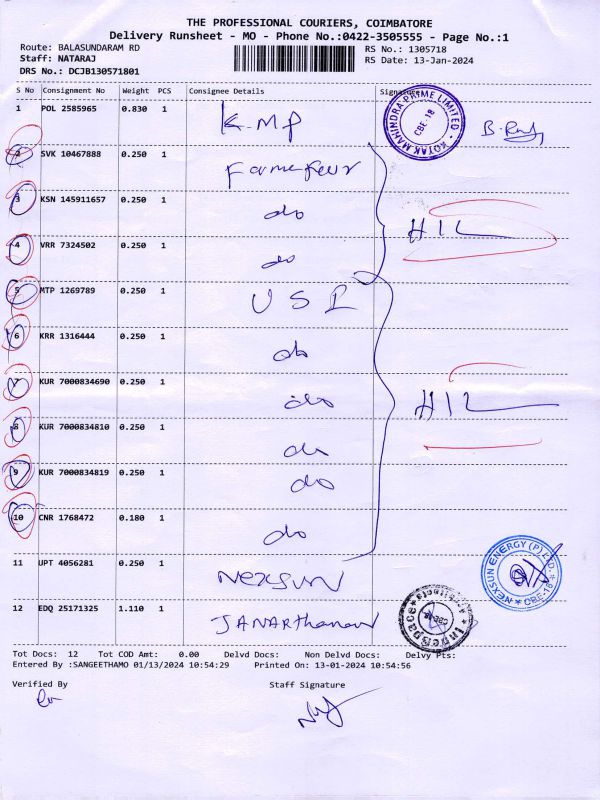 THE PROFESSIONAL COURIERS, COIMBATORE
Delivery Runsheet - MO - Phone No.:0422-3505555 - Page No.:1
Route: BALASUNDARAM RD
RS No.: 1305718
Staff: NATARAJ
RS Date: 13-Jan-2024
DRS No.: DCJB130571801
S No Consignment No Weight PCS Consignee Details Signature
1 POL 2585965 0.830 1 K.M.P
KOTAK MAHINDRA PRIME LIMITED CBE-18
2 SVK 10467888 0.250 1
3 KSN 145911657 0.250 1 do
4 VRR 7324502 0.250 1 do
5 MTP 1269789 0.250 1 U S I
6 KRR 1316444 0.250 1 do
7 KUR 7000834690 0.250 1 do
8 KUR 7000834810 0.250 1 do
9 KUR 7000834819 0.250 1 do
10 CNR 1768472 0.180 1 do
11 UPT 4056281 0.250 1 Nexsun
NEXSUN ENERGY (P) LTD. CBE-18
12 EDQ 25171325 1.110 1 JANARthanan
Tot Docs: 12 Tot COD Amt: 0.00 Delvd Docs: Non Delvd Docs: Delvy Pts:
Entered By :SANGEETHAMO 01/13/2024 10:54:29 Printed On: 13-01-2024 10:54:56
Verified By Staff Signature